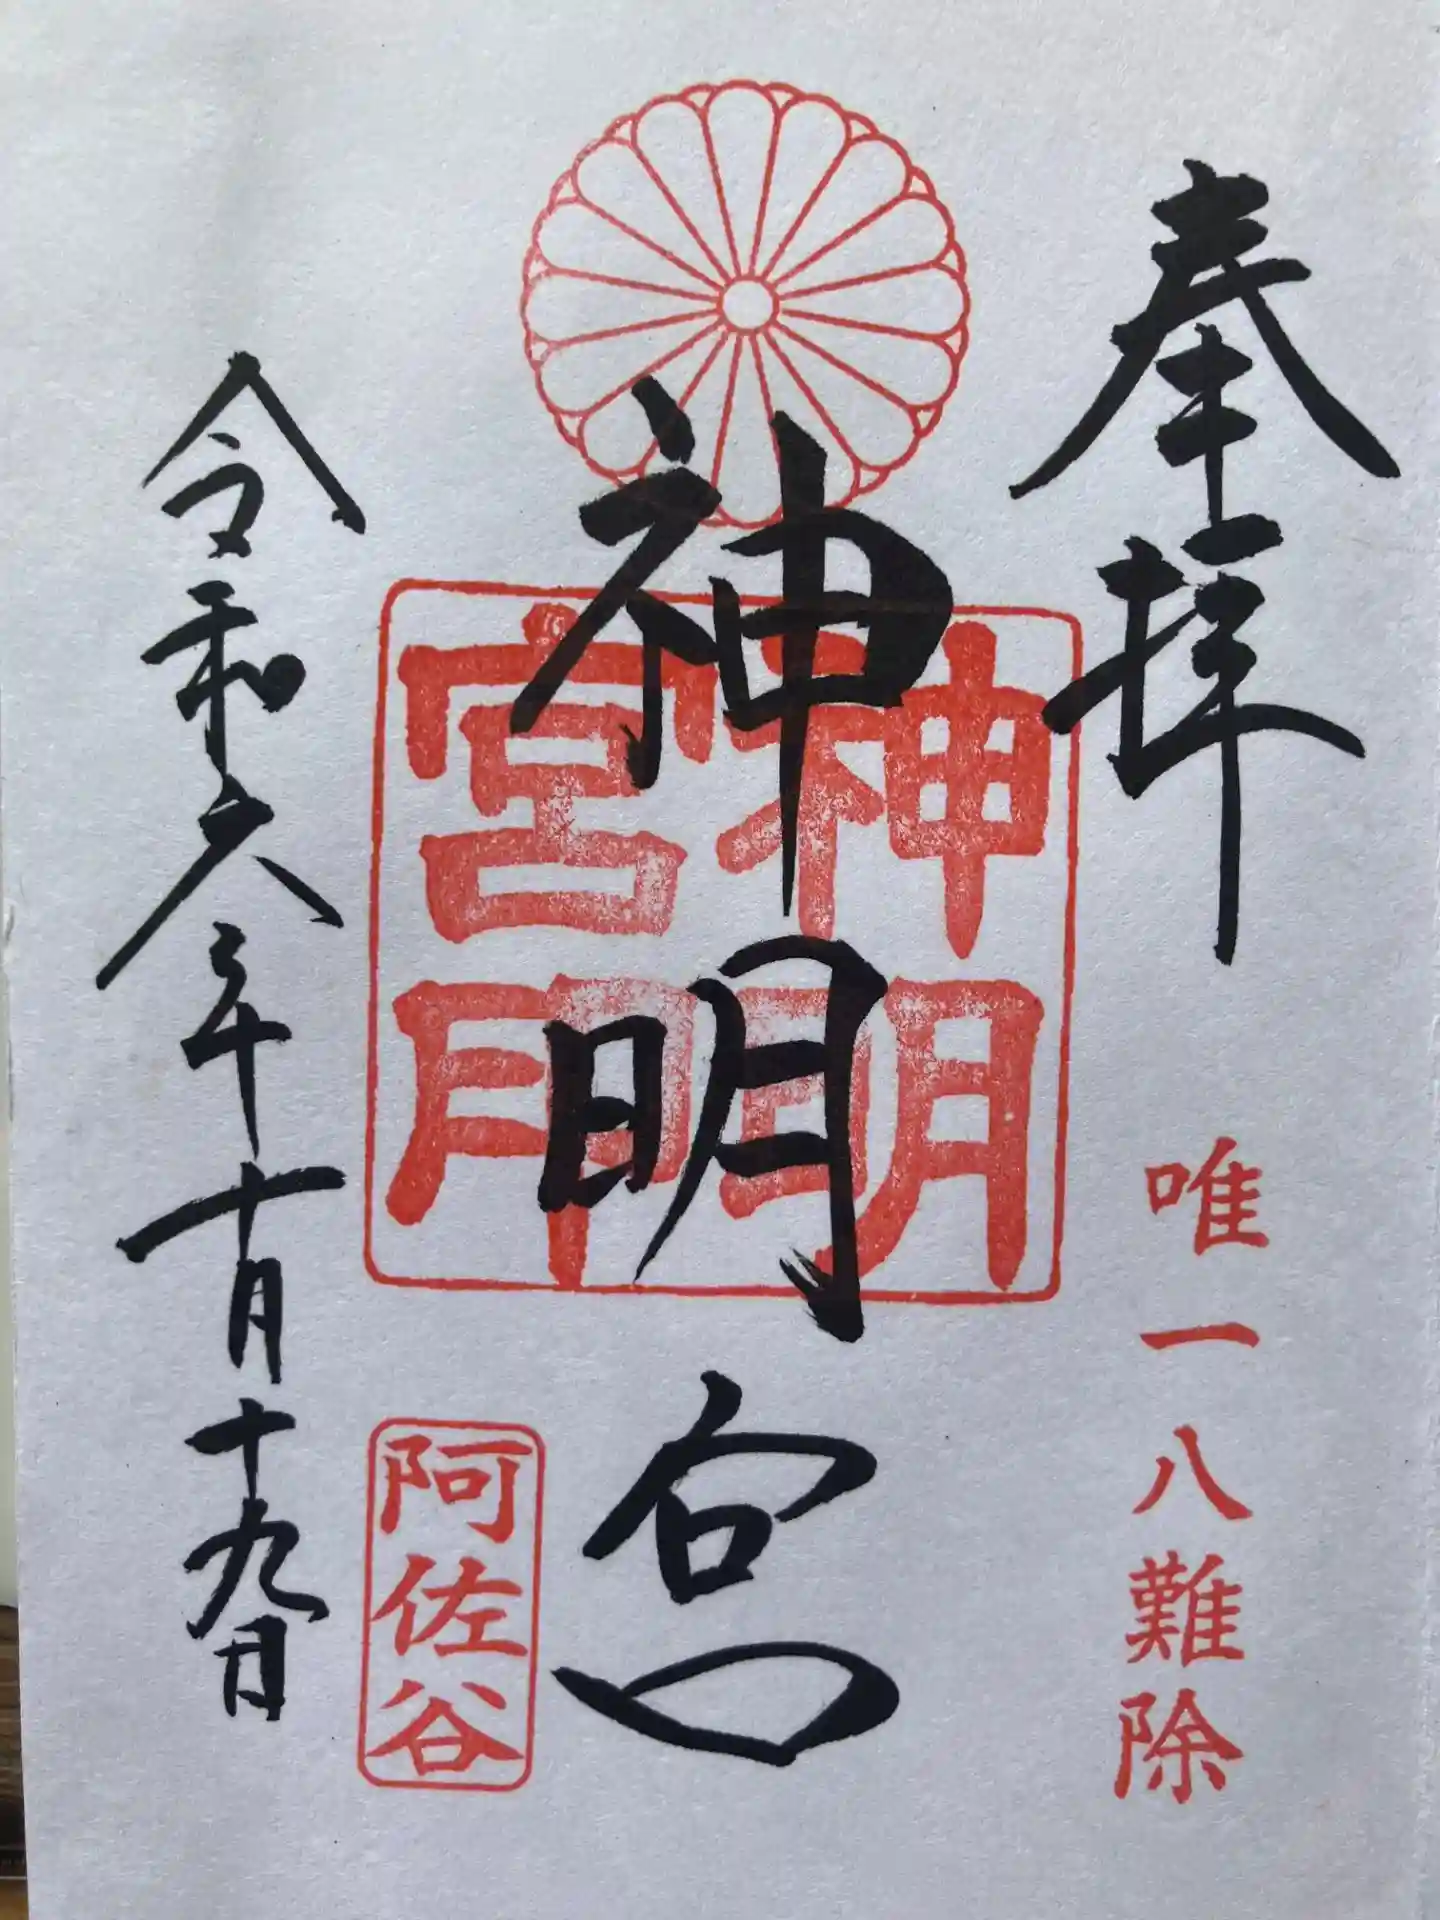 奉拝
唯一八難除
神明宮
神明
宮印
阿佐谷
令和六年十月十九日